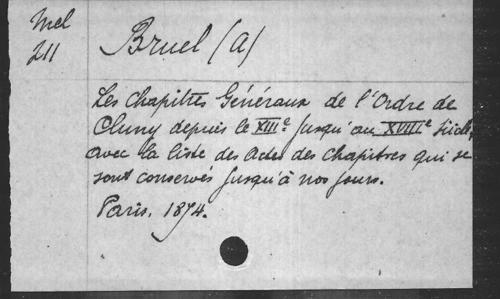 Mel
211
Bruel (A)
Les Chapitres Généraux de l'Ordre de
Cluny depuis le XIIIe jusqu'au XVIIIe Siècle,
avec la liste des Actes des Chapitres qui se
sont conservés jusqu'à nos jours.
Paris. 1874.